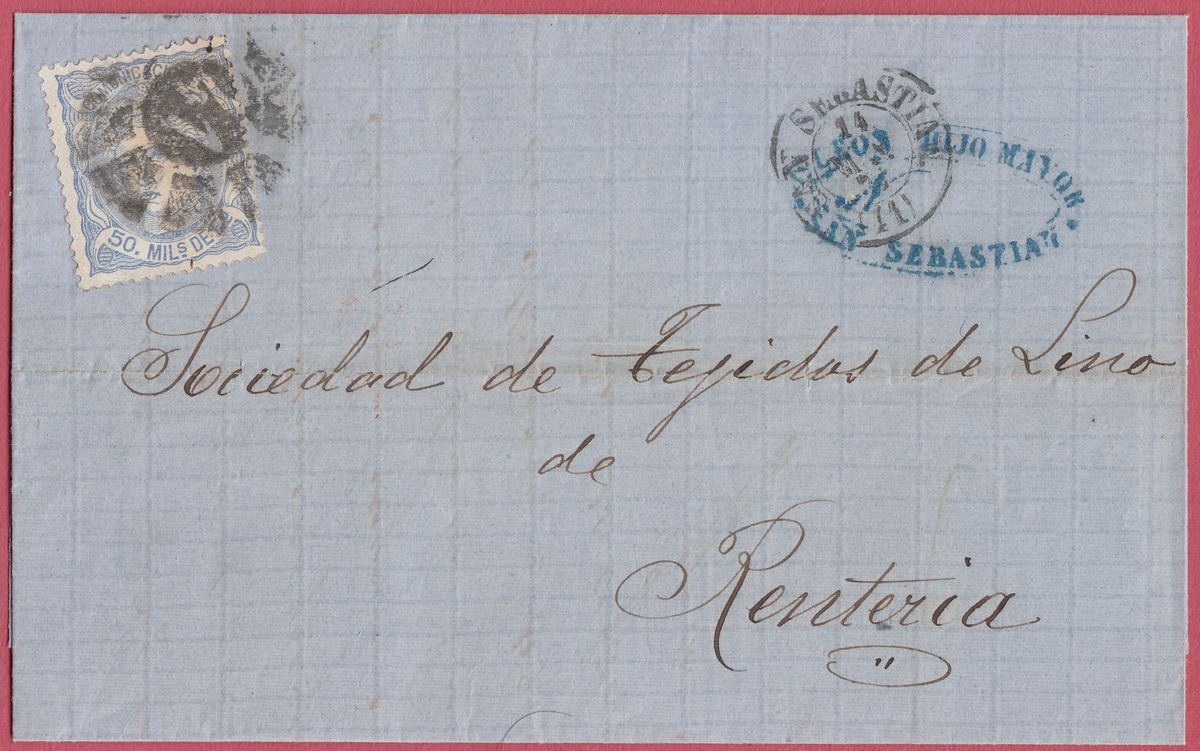 50. MILS DE
SEBASTIAN
14
HIJO MAYOR
SAN SEBASTIAN
Sociedad de Tejidos de Lino
de
Renteria